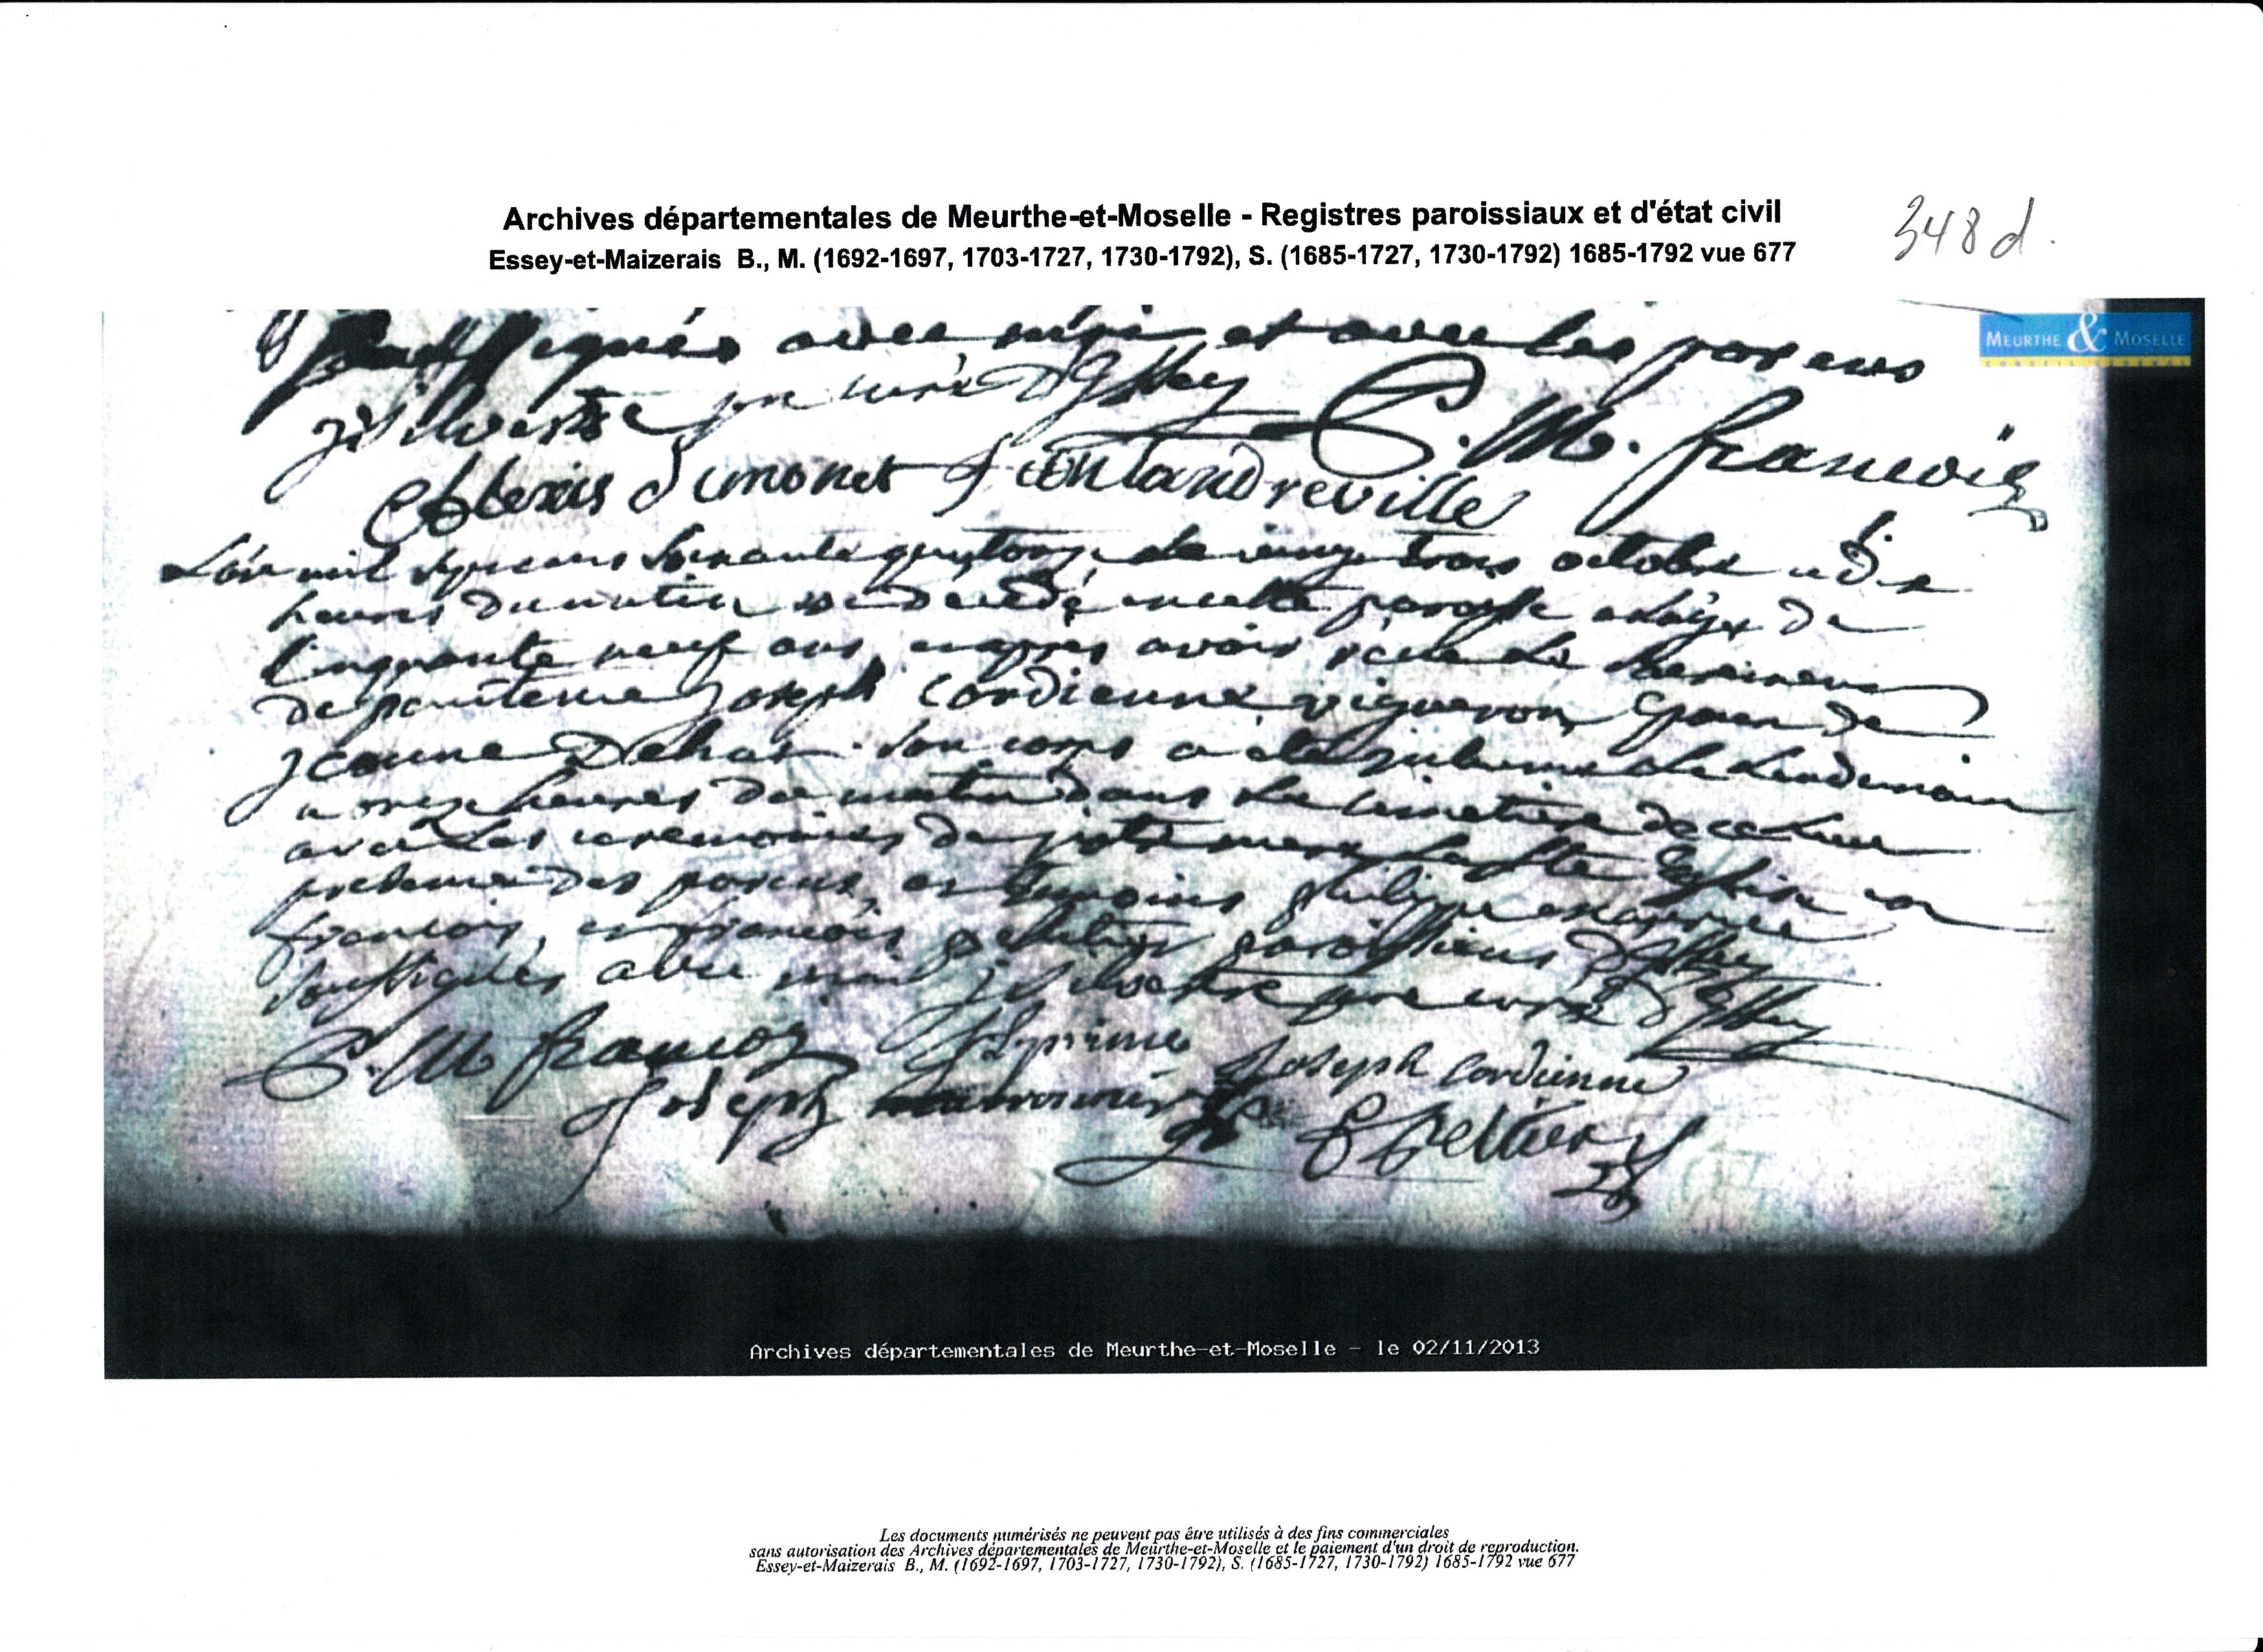 Archives départementales de Meurthe-et-Moselle - Registres paroissiaux et d'état civil
Essey-et-Maizerais B., M. (1692-1697, 1703-1727, 1730-1792), S. (1685-1727, 1730-1792) 1685-1792 vue 677
348 d.
MEURTHE & MOSELLE
soussignés avec moi et avec les parens
J Silvestre ptre curé d'Essey C. M. francois
Alexis Simonet J landreville
L'an mil sept cens soixante quatorze le vingt trois octobre a dix
heures du matin est decedé en cette paroisse agé de
Cinquante neuf ans, apres avoir reçu le sacrement
de penitence Joseph Cordienne, vigneron Epoux de
Jeanne Dehas son corps a eté inhumé le lendemain
a onze heures du matin dans le cimetiere de ce lieu
avec les ceremonies de notre mere la Ste Eglise en
presence des parens, et temoins philippe
francois, et francois peltier paroissiens d'Essey
soussignés avec moi J Silvestre ptre curé d'Essey
C. M francois Joseph Cordienne
Joseph F Peltier
Archives départementales de Meurthe-et-Moselle - le 02/11/2013
Les documents numérisés ne peuvent pas être utilisés à des fins commerciales
sans autorisation des Archives départementales de Meurthe-et-Moselle et le paiement d'un droit de reproduction.
Essey-et-Maizerais B., M. (1692-1697, 1703-1727, 1730-1792), S. (1685-1727, 1730-1792) 1685-1792 vue 677